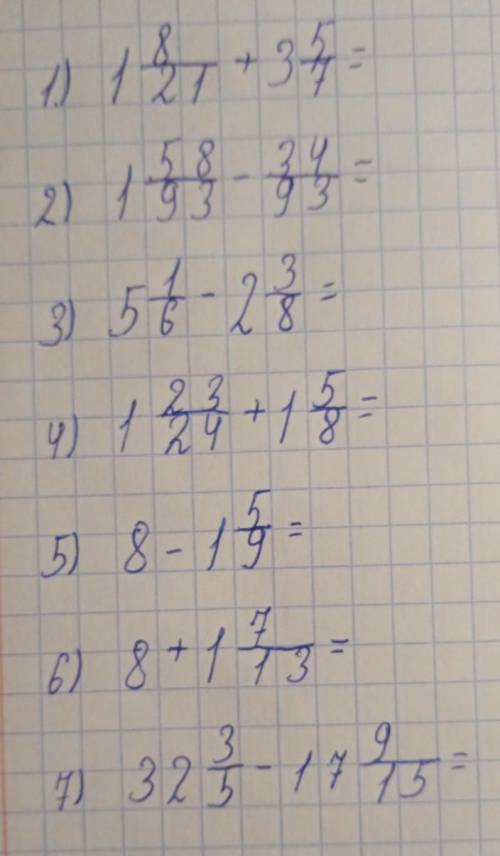 1) 1 8/21 + 3 5/7 =
2) 1 58/93 - 34/93 =
3) 5 1/6 - 2 3/8 =
4) 1 23/24 + 1 5/8 =
5) 8 - 1 5/9 =
6) 8 + 1 7/13 =
7) 32 3/5 - 17 9/15 =